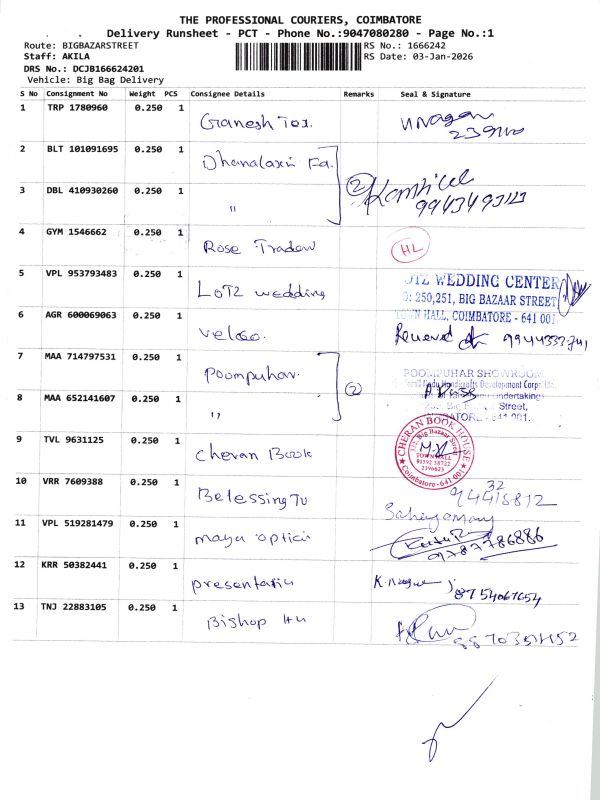 THE PROFESSIONAL COURIERS, COIMBATORE
Delivery Runsheet - PCT - Phone No.:9047080280 - Page No.:1
Route: BIGBAZARSTREET RS No.: 1666242
Staff: AKILA RS Date: 03-Jan-2026
DRS No.: DCJB166624201
Vehicle: Big Bag Delivery
S No Consignment No Weight PCS Consignee Details Remarks Seal & Signature
1 TRP 1780960 0.250 1 Ganesh Tex.
2 BLT 101091695 0.250 1 Dhanalaxmi Fa.
3 DBL 410930260 0.250 1 " 2
4 GYM 1546662 0.250 1 Rose Traders HL
5 VPL 953793483 0.250 1 LOTZ wedding
LOTZ WEDDING CENTER
NO: 250,251, BIG BAZAAR STREET
TOWN HALL, COIMBATORE - 641 001.
6 AGR 600069063 0.250 1 Veloso. Received
7 MAA 714797531 0.250 1 Poompuhar. 2
POOMPUHAR SHOWROOM
Tamil Nadu Handicrafts Development Corpn Ltd.
Undertaking
Big Street,
8 MAA 652141607 0.250 1 "
9 TVL 9631125 0.250 1 Cheran Book
CHERAN BOOK HOUSE
132, Big Bazaar Street
TOWN HALL
Coimbatore - 641 001
10 VRR 7609388 0.250 1 Belessing Tv
11 VPL 519281479 0.250 1 maya optics 9787786886
12 KRR 50382441 0.250 1 presentatiu 8754067654
13 TNJ 22883105 0.250 1 Bishop Hu